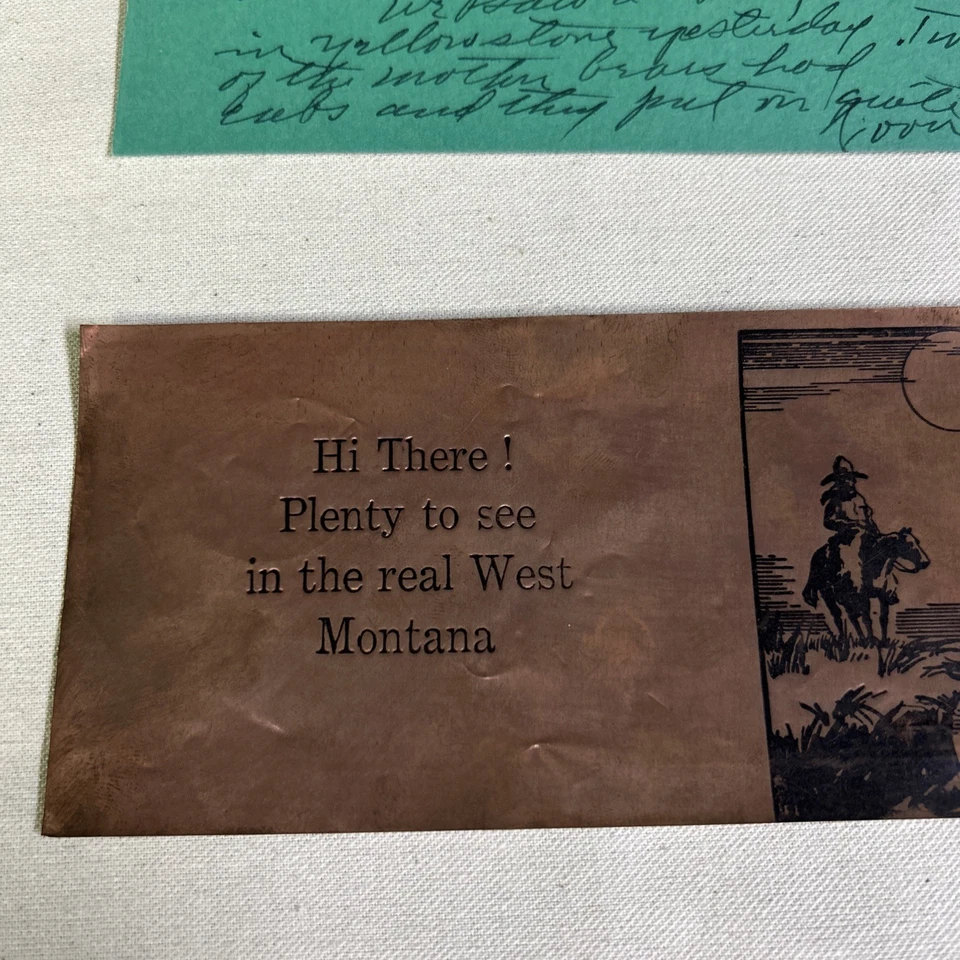 We saw a
in yellowstone yesterday. Two
of the mother bears had
cubs and they put on quite
Hi There !
Plenty to see
in the real West
Montana